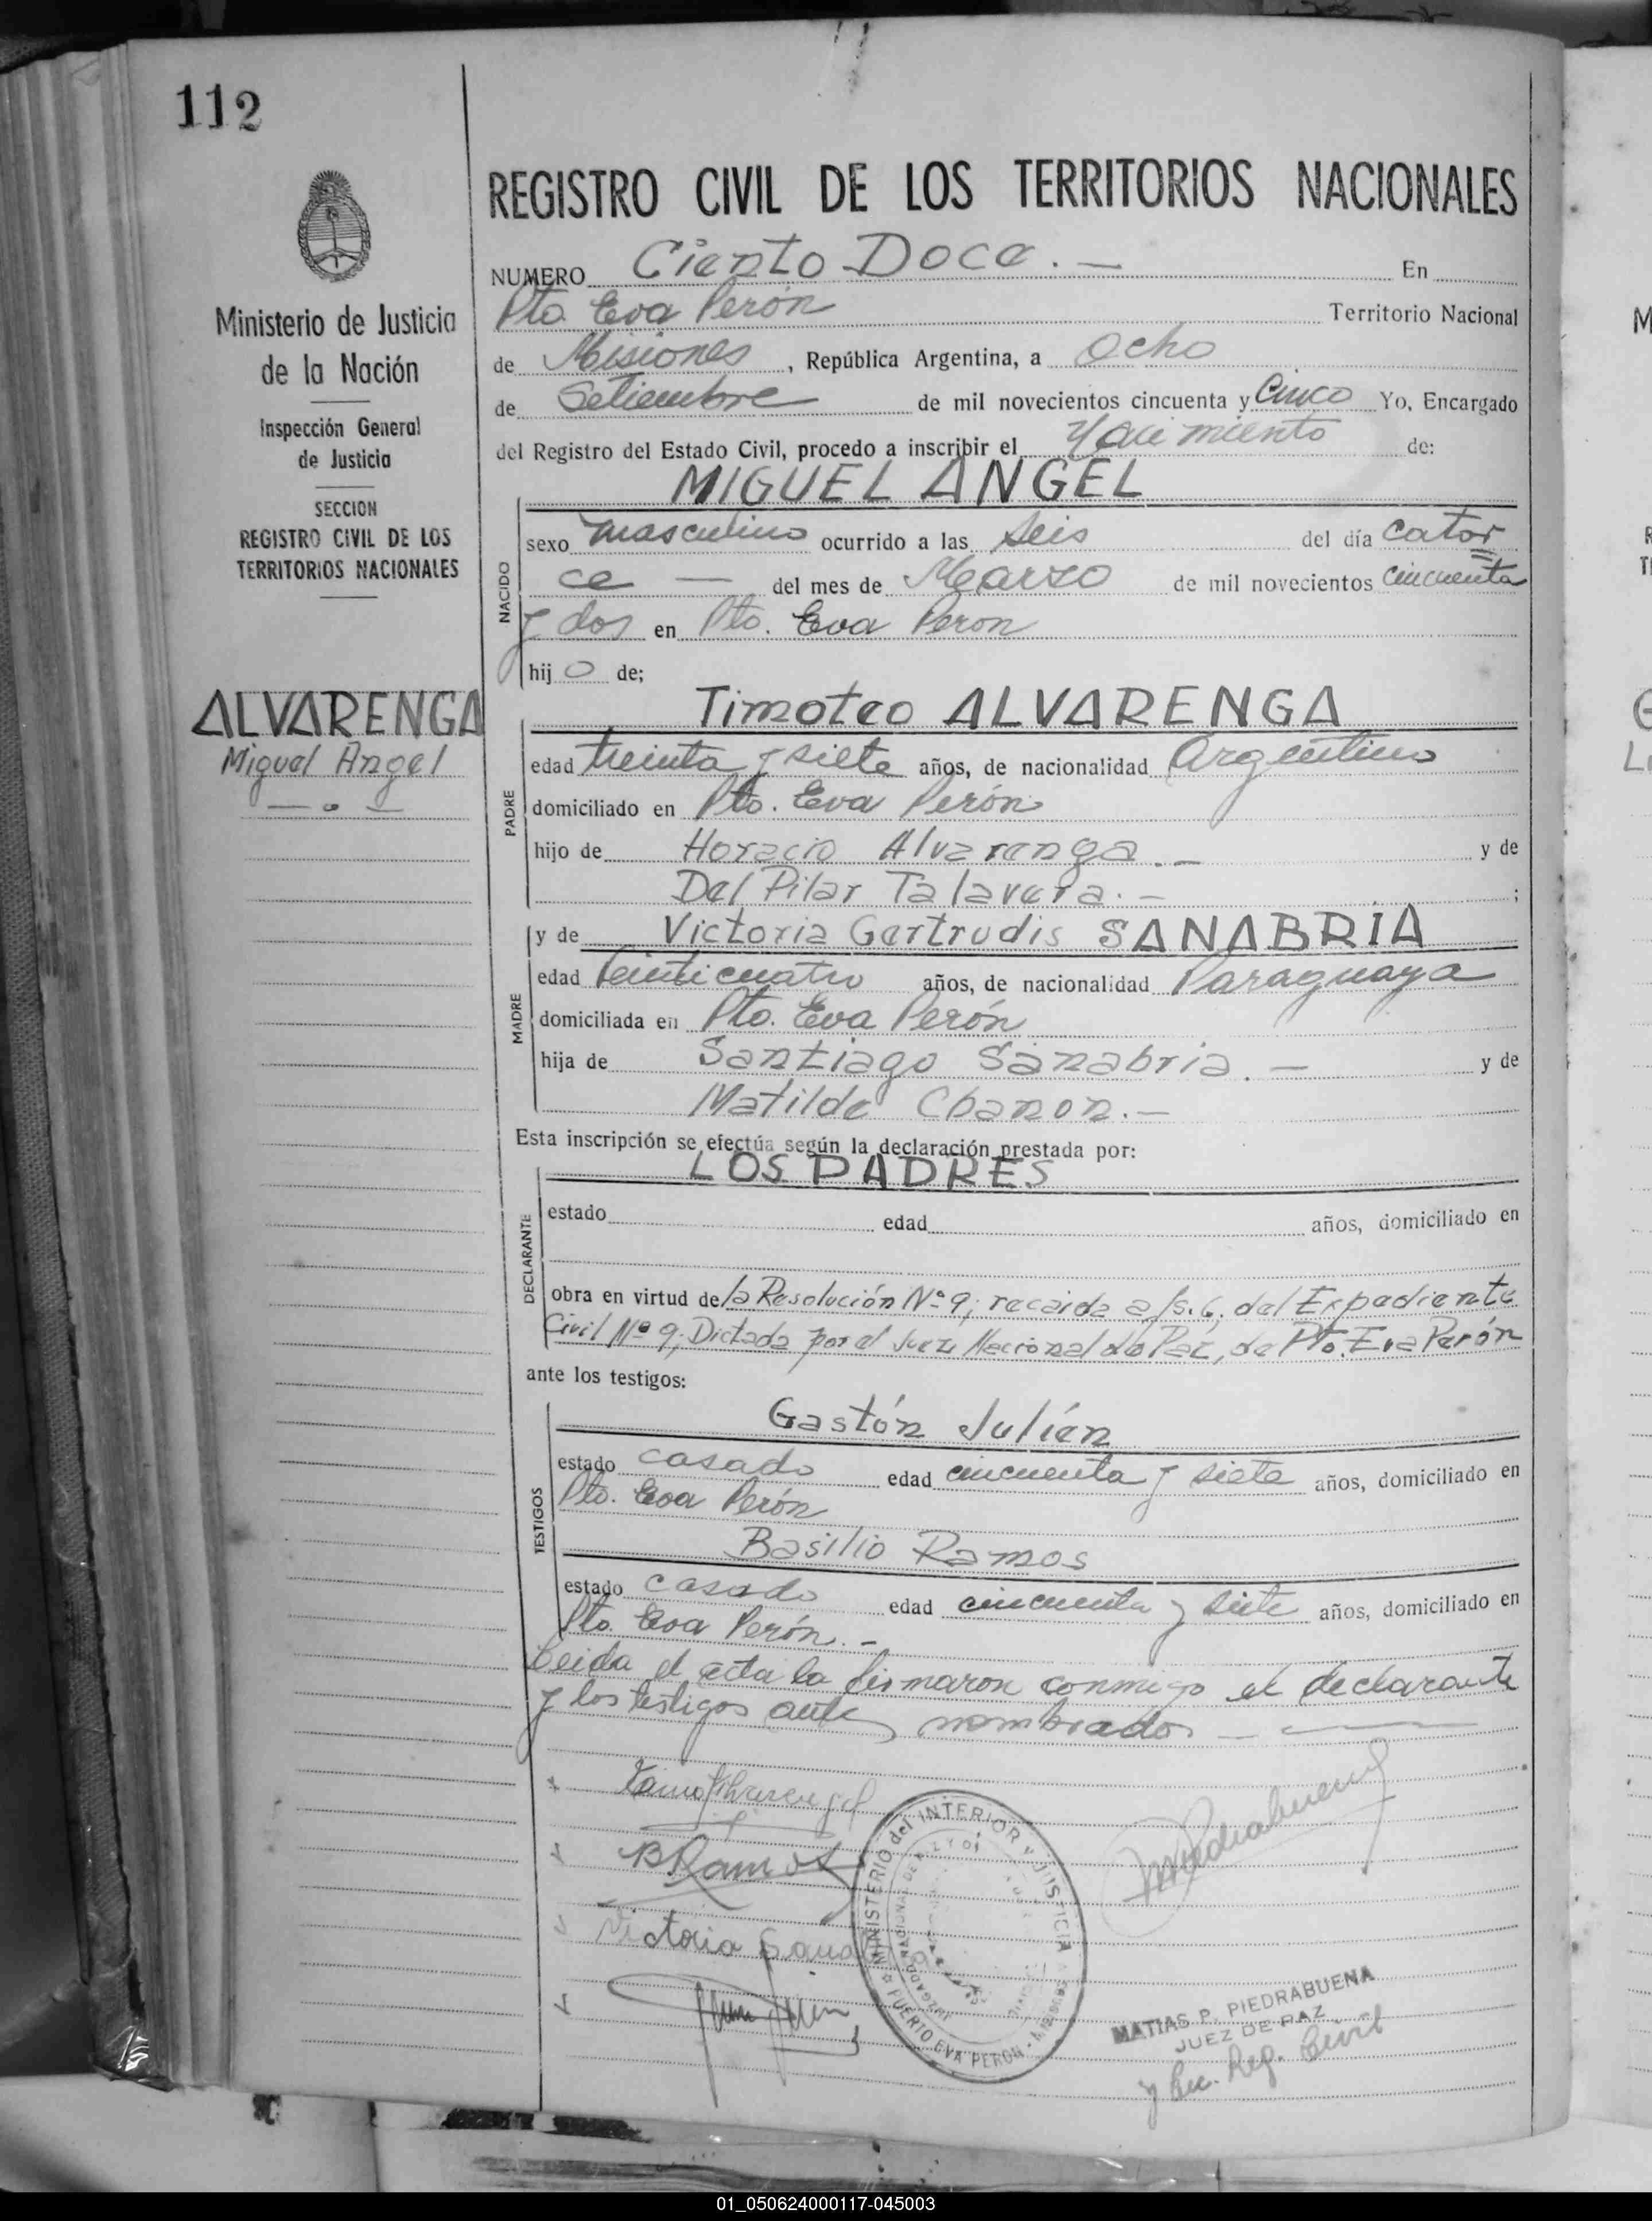 112
REGISTRO CIVIL DE LOS TERRITORIOS NACIONALES
Ministerio de Justicia
de la Nación
Inspección General
de Justicia
SECCION
REGISTRO CIVIL DE LOS
TERRITORIOS NACIONALES
ALVARENGA
Miguel Angel
NUMERO Ciento Doce. — En
Pto. Eva Perón Territorio Nacional
de Misiones, República Argentina, a Ocho
de Setiembre de mil novecientos cincuenta y Cinco Yo, Encargado
del Registro del Estado Civil, procedo a inscribir el Nacimiento de:
NACIDO
MIGUEL ANGEL
sexo masculino ocurrido a las seis del día cator
ce — del mes de Marzo de mil novecientos cincuenta
y dos en Pto. Eva Peron
hijo de;
PADRE
Timoteo ALVARENGA
edad treinta y siete años, de nacionalidad Argentino
domiciliado en Pto. Eva Perón
hijo de Horacio Alvarenga. — y de
Del Pilar Talavera. — ;
MADRE
y de Victoria Gertrudis SANABRIA
edad veinticuatro años, de nacionalidad Paraguaya
domiciliada en Pto. Eva Perón
hija de Santiago Sanabria. — y de
Matilde Chanon. —
Esta inscripción se efectúa según la declaración prestada por:
DECLARANTE
LOS PADRES
estado edad años, domiciliado en
obra en virtud de la Resolución Nº 9; recaida a fs. 6, del Expediente
Civil Nº 9; Dictada por el Juez Nacional de Paz, de Pto. Eva Perón
ante los testigos:
TESTIGOS
Gastón Julién
estado casado edad cincuenta y siete años, domiciliado en
Pto. Eva Perón
Basilio Ramos
estado casado edad cincuenta y siete años, domiciliado en
Pto. Eva Perón. —
Leida el acta la firmaron conmigo el declarante
y los testigos antes nombrados —
B Ramos
Victoria
MINISTERIO del INTERIOR Y JUSTICIA
PUERTO EVA PERON
MATIAS P. PIEDRABUENA
JUEZ DE PAZ
y Enc. Reg. Civil
01_050624000117-045003